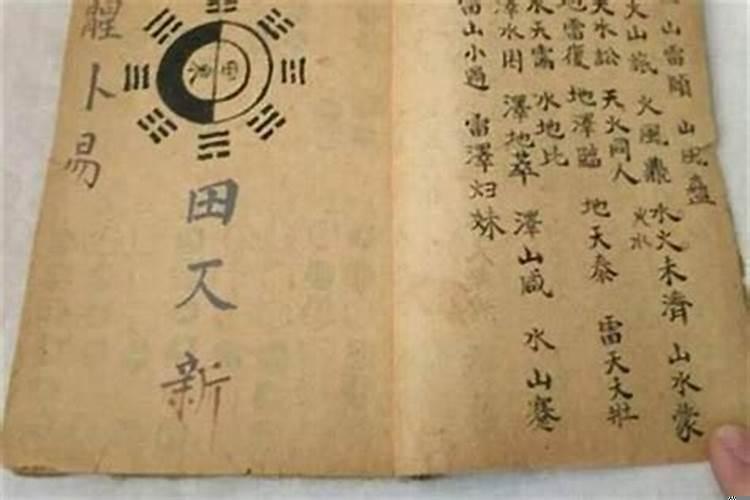 山雷頤 山風蠱
火山旅 火風鼎 水火未濟 山水蒙
火水
天水訟 天火同人
地雷復 地澤臨 地天泰 雷天天壯
水天需 水地比
澤水困 澤地萃 澤山咸 水山蹇
雷山小過 雷澤归妹
田又新
卜易